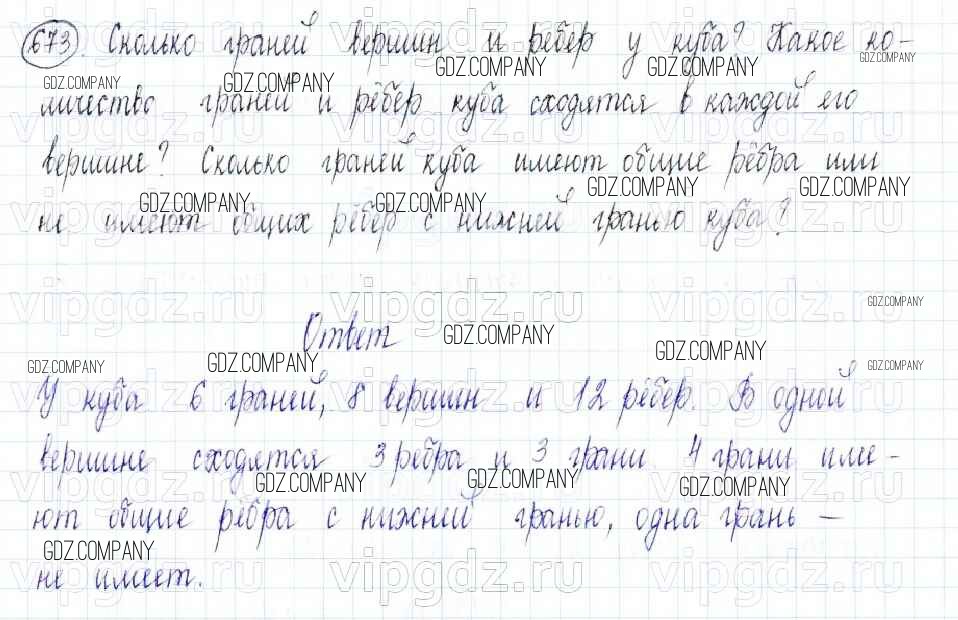 673. Сколько граней вершин и рёбер у куба? Какое ко-
личество граней и рёбер куба сходятся в каждой его
вершине? Сколько граней куба имеют общие рёбра или
не имеют общих рёбер с нижней гранью куба?
Ответ
У куба 6 граней, 8 вершин и 12 рёбер. В одной
вершине сходятся 3 ребра и 3 грани. 4 грани име-
ют общие рёбра с нижней гранью, одна грань —
не имеет.
GDZ.COMPANY
vipgdz.ru